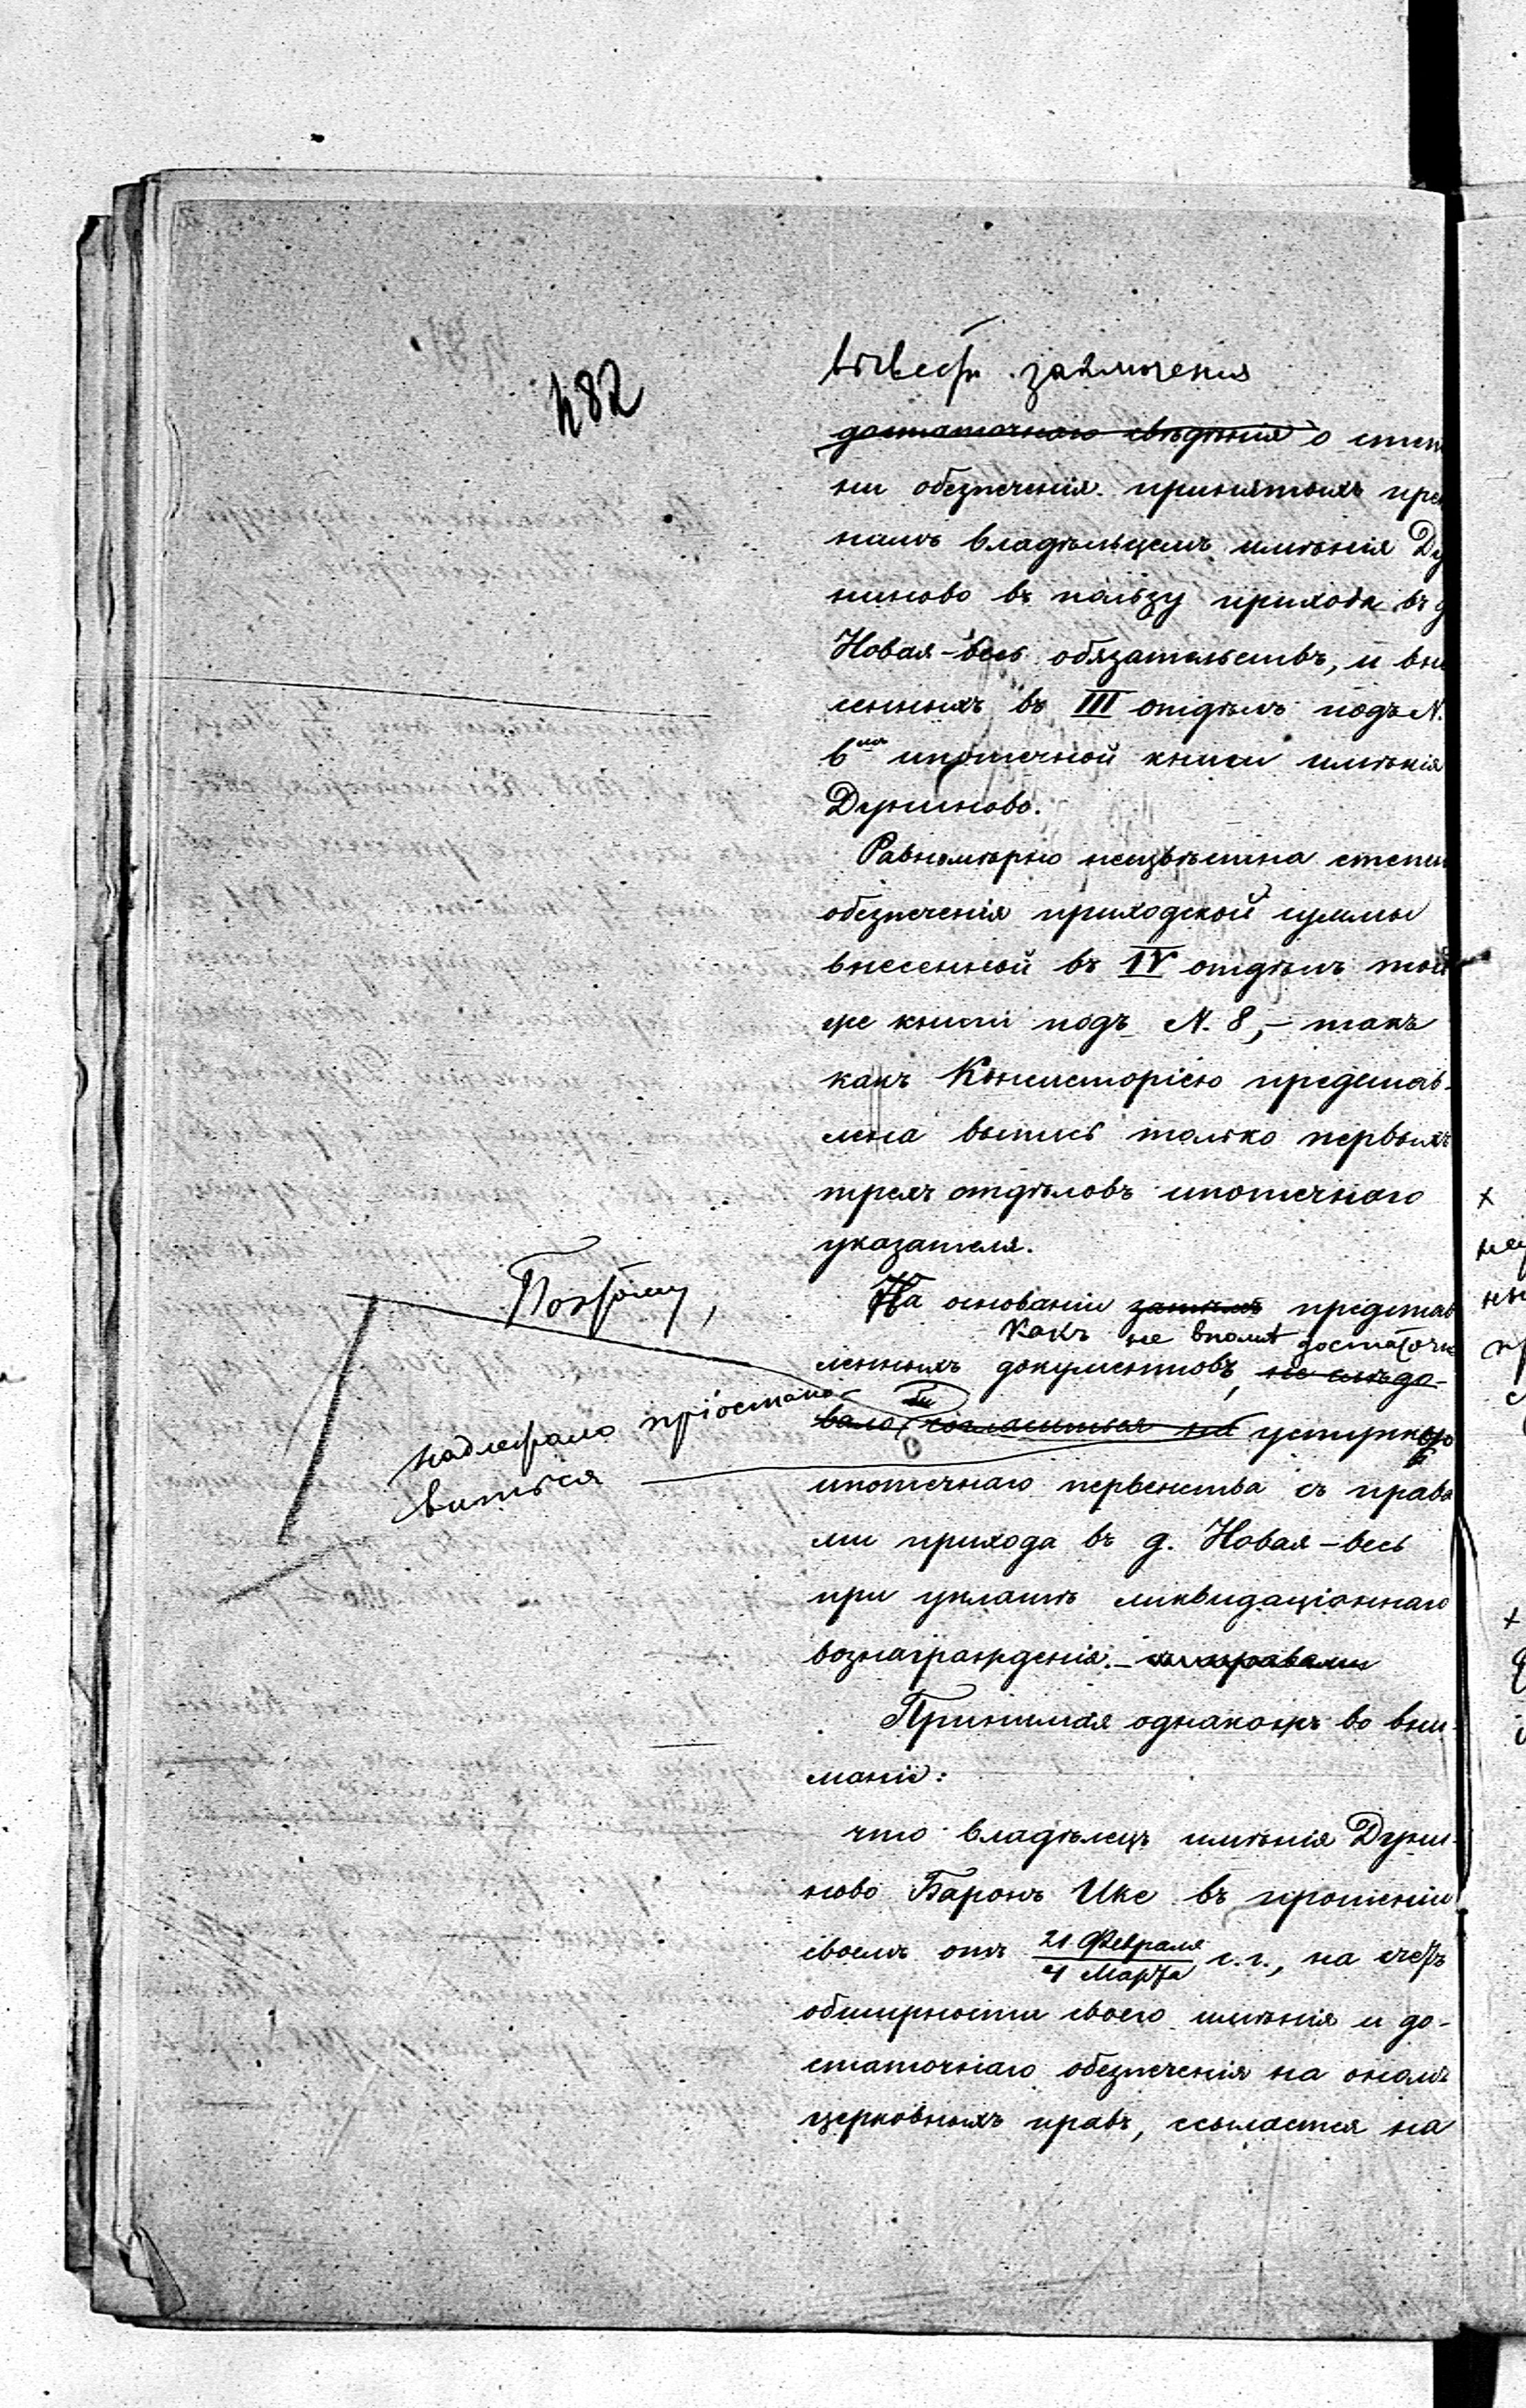 482
вывести заключения
достаточнаго свѣдѣнія о степе
ни обезпеченія принятыхъ преж
нимъ владѣльцемъ имѣнія Ду
ниново въ пользу прихода въ д
Новая-весь обязательствъ, и вне
сенныхъ въ III отдѣлъ подъ N.
6мъ ипотечной книги имѣнія
Дуниново.
Равномѣрно неизвѣстна степень
обезпеченія приходской суммы
внесенной въ IV отдѣлъ той
же книги подъ N. 8,- такъ
какъ Консисторіею представ-
лена выпись только первыхъ
трехъ отдѣловъ ипотечнаго
указателя.
Поэтому,
На основаніи затѣмъ представ
какъ не вполнѣ достаточн
ленныхъ документовъ, не слѣдо-
надлежало пріостано-
виться
вало бы согласиться на уступкою
ипотечнаго первенства съ права
ми прихода въ д. Новая-весь
при уплатѣ ликвидаціоннаго
вознагражденія.
Принимая однакожъ во вни-
маніе:
что владѣлецъ имѣнія Дуни-
ново Баронъ Ике въ прошеніи
своемъ отъ 21 Февраля / 4 Марта с.г., на счетъ
обширности своего имѣнія и до-
статочнаго обезпеченія на ономъ
церковныхъ правъ, ссылается на